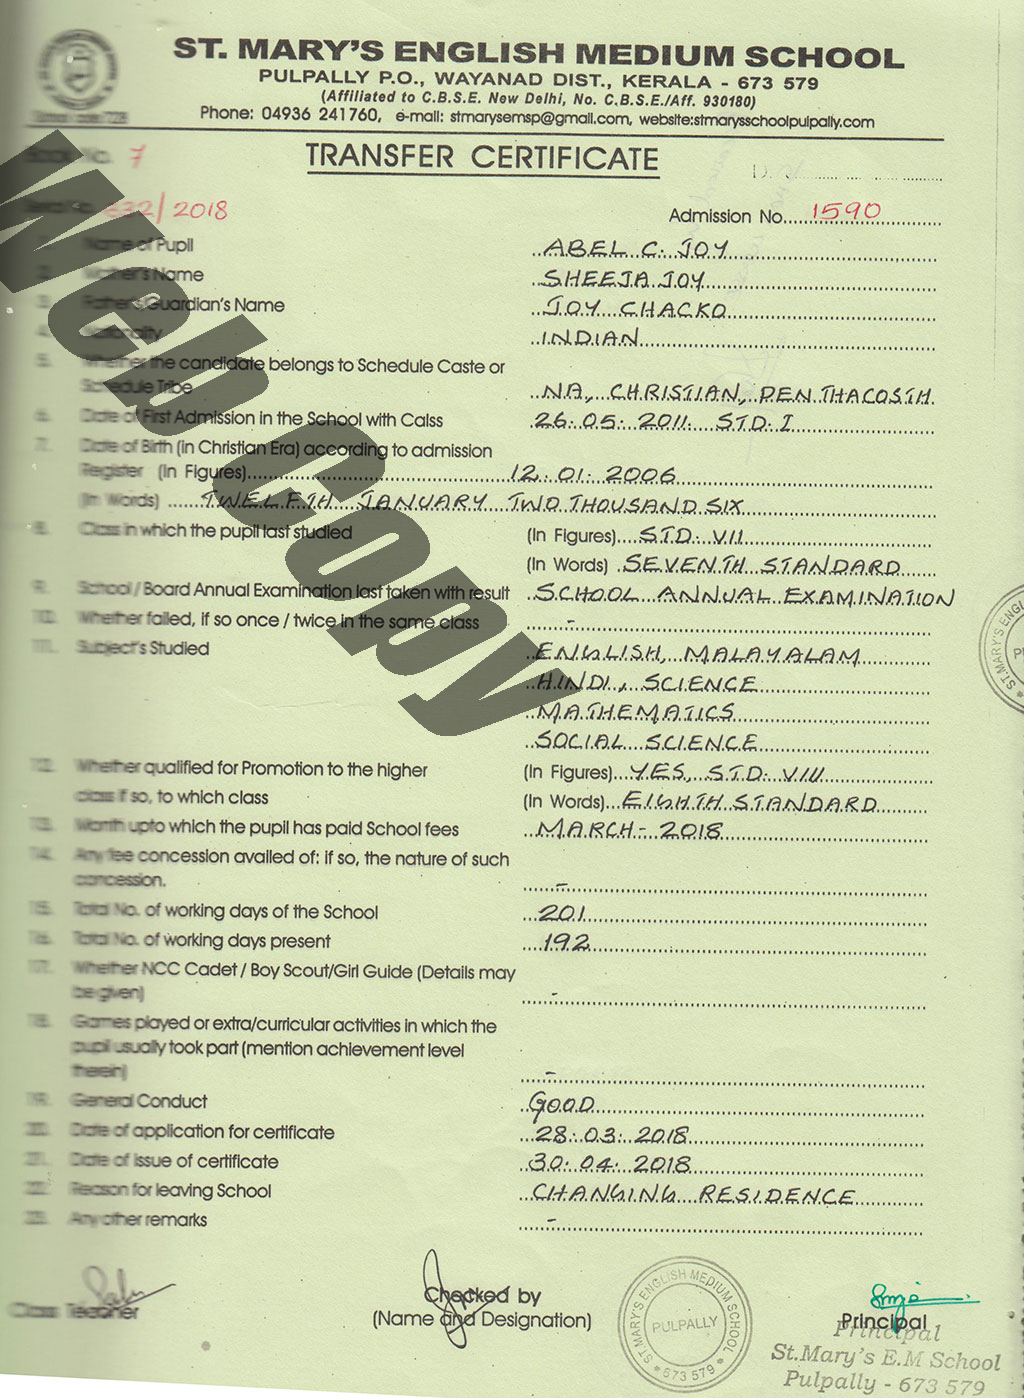 ST. MARY'S ENGLISH MEDIUM SCHOOL
PULPALLY P.O., WAYANAD DIST., KERALA - 673 579
(Affiliated to C.B.S.E. New Delhi, No. C.B.S.E./Aff. 930180)
Phone: 04936 241760, e-mail: stmarysemsp@gmail.com, website:stmarysschoolpulpally.com
TRANSFER CERTIFICATE
No. 7
632/2018
Admission No. 1590
Name of Pupil ABEL C. JOY
2. Mother's Name SHEEJA JOY
3. Father's/Guardian's Name JOY CHACKO
4. Nationality INDIAN
5. Whether the candidate belongs to Schedule Caste or
Schedule Tribe NA, CHRISTIAN, PENTHACOSTH
6. Date of First Admission in the School with Calss 26.05.2011. STD. I
7. Date of Birth (in Christian Era) according to admission
Register (In Figures) 12.01.2006
(In Words) TWELFTH JANUARY TWO THOUSAND SIX
8. Class in which the pupil last studied (In Figures) STD. VII
(In Words) SEVENTH STANDARD
9. School / Board Annual Examination last taken with result SCHOOL ANNUAL EXAMINATION
10. Whether failed, if so once / twice in the same class -
11. Subject's Studied ENGLISH, MALAYALAM
HINDI, SCIENCE
MATHEMATICS
SOCIAL SCIENCE
12. Whether qualified for Promotion to the higher (In Figures) YES, STD. VIII
class if so, to which class (In Words) EIGHTH STANDARD
13. Month upto which the pupil has paid School fees MARCH - 2018
14. Any fee concession availed of: if so, the nature of such
concession. -
15. Total No. of working days of the School 201
16. Total No. of working days present 192
17. Whether NCC Cadet / Boy Scout/Girl Guide (Details may
be given) -
18. Games played or extra/curricular activities in which the
pupil usually took part (mention achievement level
therein) -
19. General Conduct GOOD
20. Date of application for certificate 28.03.2018
21. Date of issue of certificate 30.04.2018
22. Reason for leaving School CHANGING RESIDENCE
23. Any other remarks -
Web Copy
Class Teacher
Checked by
(Name and Designation)
ST.MARY'S ENGLISH MEDIUM SCHOOL
PULPALLY
673 579
Principal
Principal
St.Mary's E.M School
Pulpally - 673 579